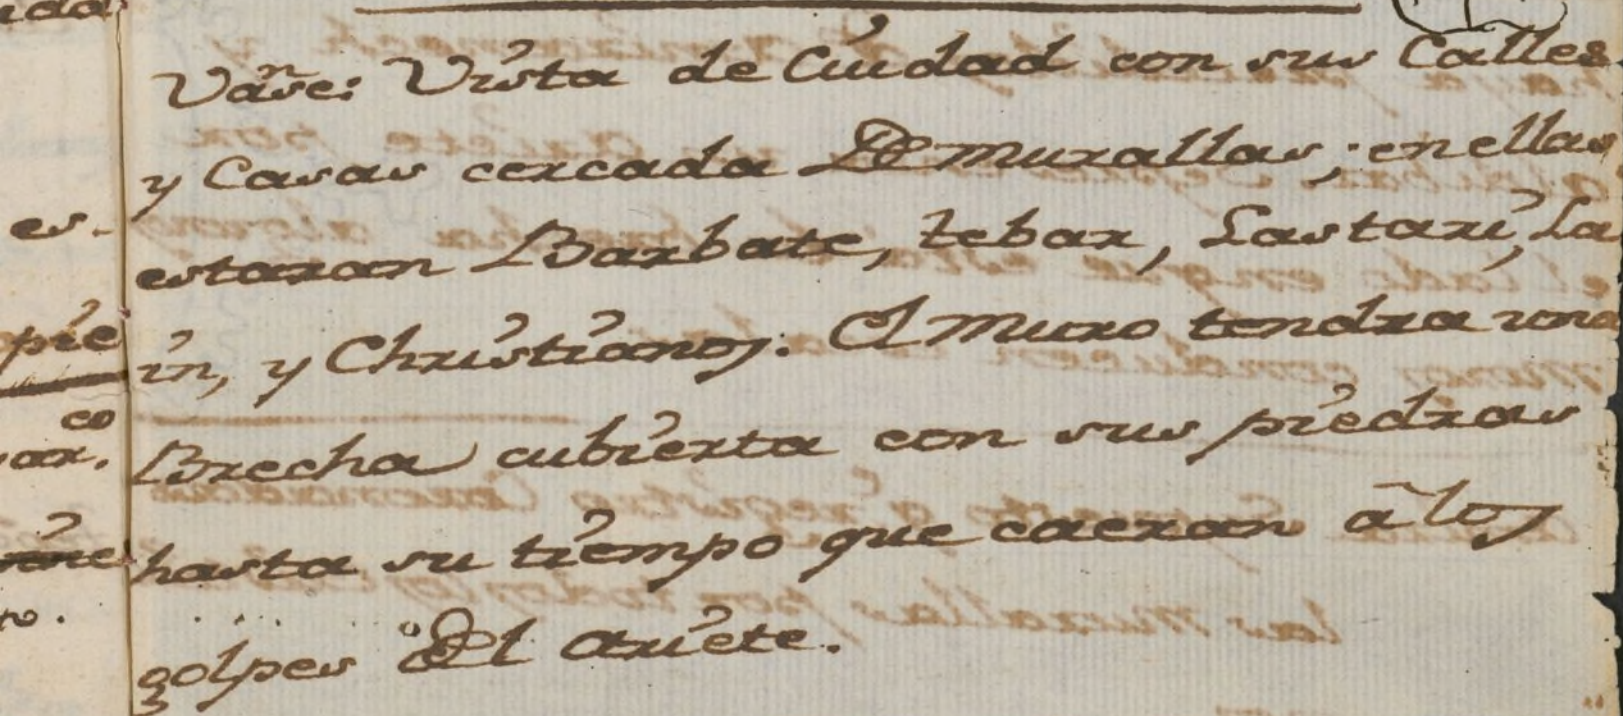 Vanse: Vista de Ciudad con sus Calles
y Casas cercada De murallas; en ellas
estaran Barbate, Zebar, Lastari, La
in, y Christianos. El muro tendra una
Brecha cubierta con sus piedras
hasta su tiempo que caeran á los
golpes Del Ariete.